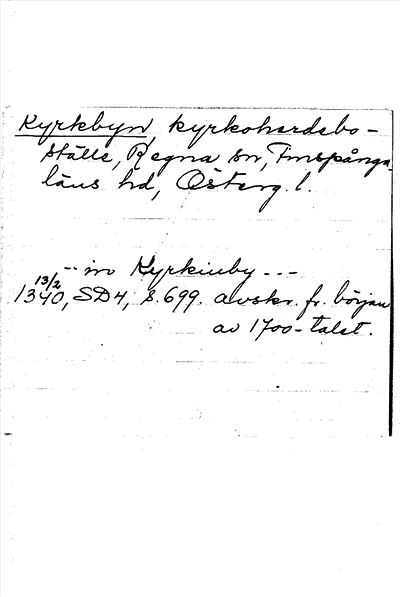 Kyrkbyn, kyrkoherdebo-
ställe, Regna sn, Finspånga
läns hd, Österg. l.
-- in Kyrkiuby ---
1340 13/2, SD 4, s. 699. avskr. fr. början
av 1700-talet.